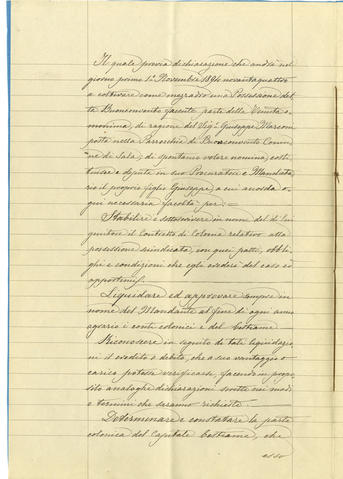 Il quale previa dichiarazione che andrà nel
giorno primo 1° Novembre 1894 novantaquattro
a coltivare come mezzadro una Possessione det
ta Buonconvento facente parte della Tenuta o
monima, di ragione del Sig. Giuseppe Marconi
posta nella Parrocchia di Buonconvento Comu
ne di Sala; di spontaneo volere nomina, costi
tuisce e deputa in suo Procuratore e Mandata
rio il proprio figlio Giuseppe, a cui accorda o
gni necessaria facoltà per: =
Stabilire e sottoscrivere in nome del di lui
genitore il Contratto di Colonia relativo alla
possessione suindicata, con quei patti, obbli
ghi e condizioni che egli crederà del caso ed
opportuni.
Liquidare ed approvare sempre in
nome del Mandante al fine di ogni anno
agrario i conti colonici e del bestiame
Riconoscere in seguito di tale liquidazio
ni il credito o debito, che a suo vantaggio o
carico potesse verificarsi, facendo in propo
sito analoghe dichiarazioni scritte nei modi
e termini che saranno richiesti.
Determinare e constatare la parte
colonica del Capitale bestiame, che
esso